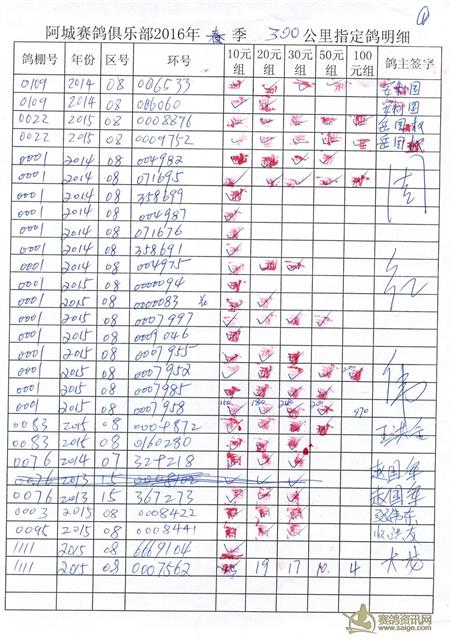 ①
阿城赛鸽俱乐部2016年 季 300公里指定鸽明细
鸽棚号 年份 区号 环号 10元组 20元组 30元组 50元组 100元组 鸽主签字
0109 2014 08 006533
0109 2014 08 006060
0022 2015 08 0008876 岳国权
0022 2015 08 0009752 岳国权
0001 2014 08 004982
0001 2014 08 071695 周
0001 2014 08 358699
0001 2014 08 004987
0001 2014 08 071676
0001 2014 08 358691
0001 2014 08 004975
0001 2015 08 0000094
0001 2015 08 0000083
0001 2015 08 0007997
0001 2015 08 0009046
0001 2015 08 0007955
0001 2015 08 0007952 伟
0001 2015 08 0007985
0001 2015 08 0007958 970
0083 2015 08 0004872
0083 2015 08 0160280
0076 2014 07 329218
0076 2013 15 赵国军
0076 2013 15 367273 赵国军
0003 2015 08 0008422
0095 2015 08 0008441
1111 2015 08 6669104
1111 2015 08 0007562 19 17 10 4
赛鸽资讯网
www.saige.com